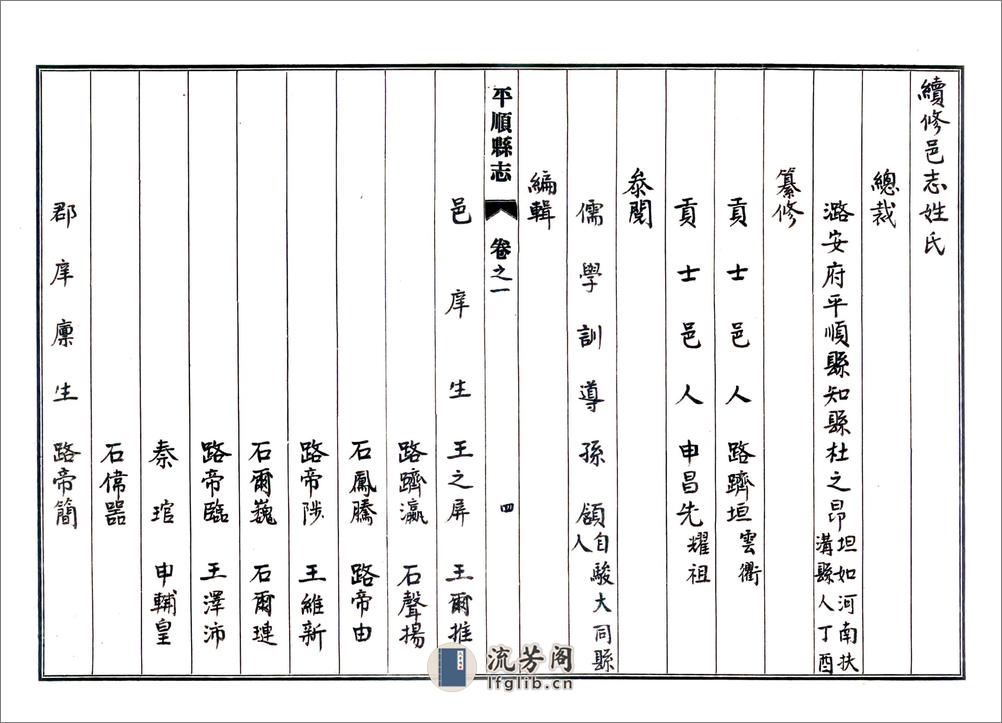 續修邑志姓氏
總裁
潞安府平順縣知縣杜之昂坦如河南扶
溝縣人丁酉
纂修
貢士邑人路躋垣雲衢
貢士邑人申昌先耀祖
叅閱
儒學訓導孫頟自駿大同縣
人
編輯
平順縣志 卷之一 四
邑庠生王之屏 王爾推
路躋瀛 石聲揚
石鳳騰 路帝由
路帝陟 王維新
石爾巍 石爾璉
路帝臨 王澤沛
秦琯 申輔皇
石偉器
郡庠廩生路帝簡
流芳阁
lfglib.cn